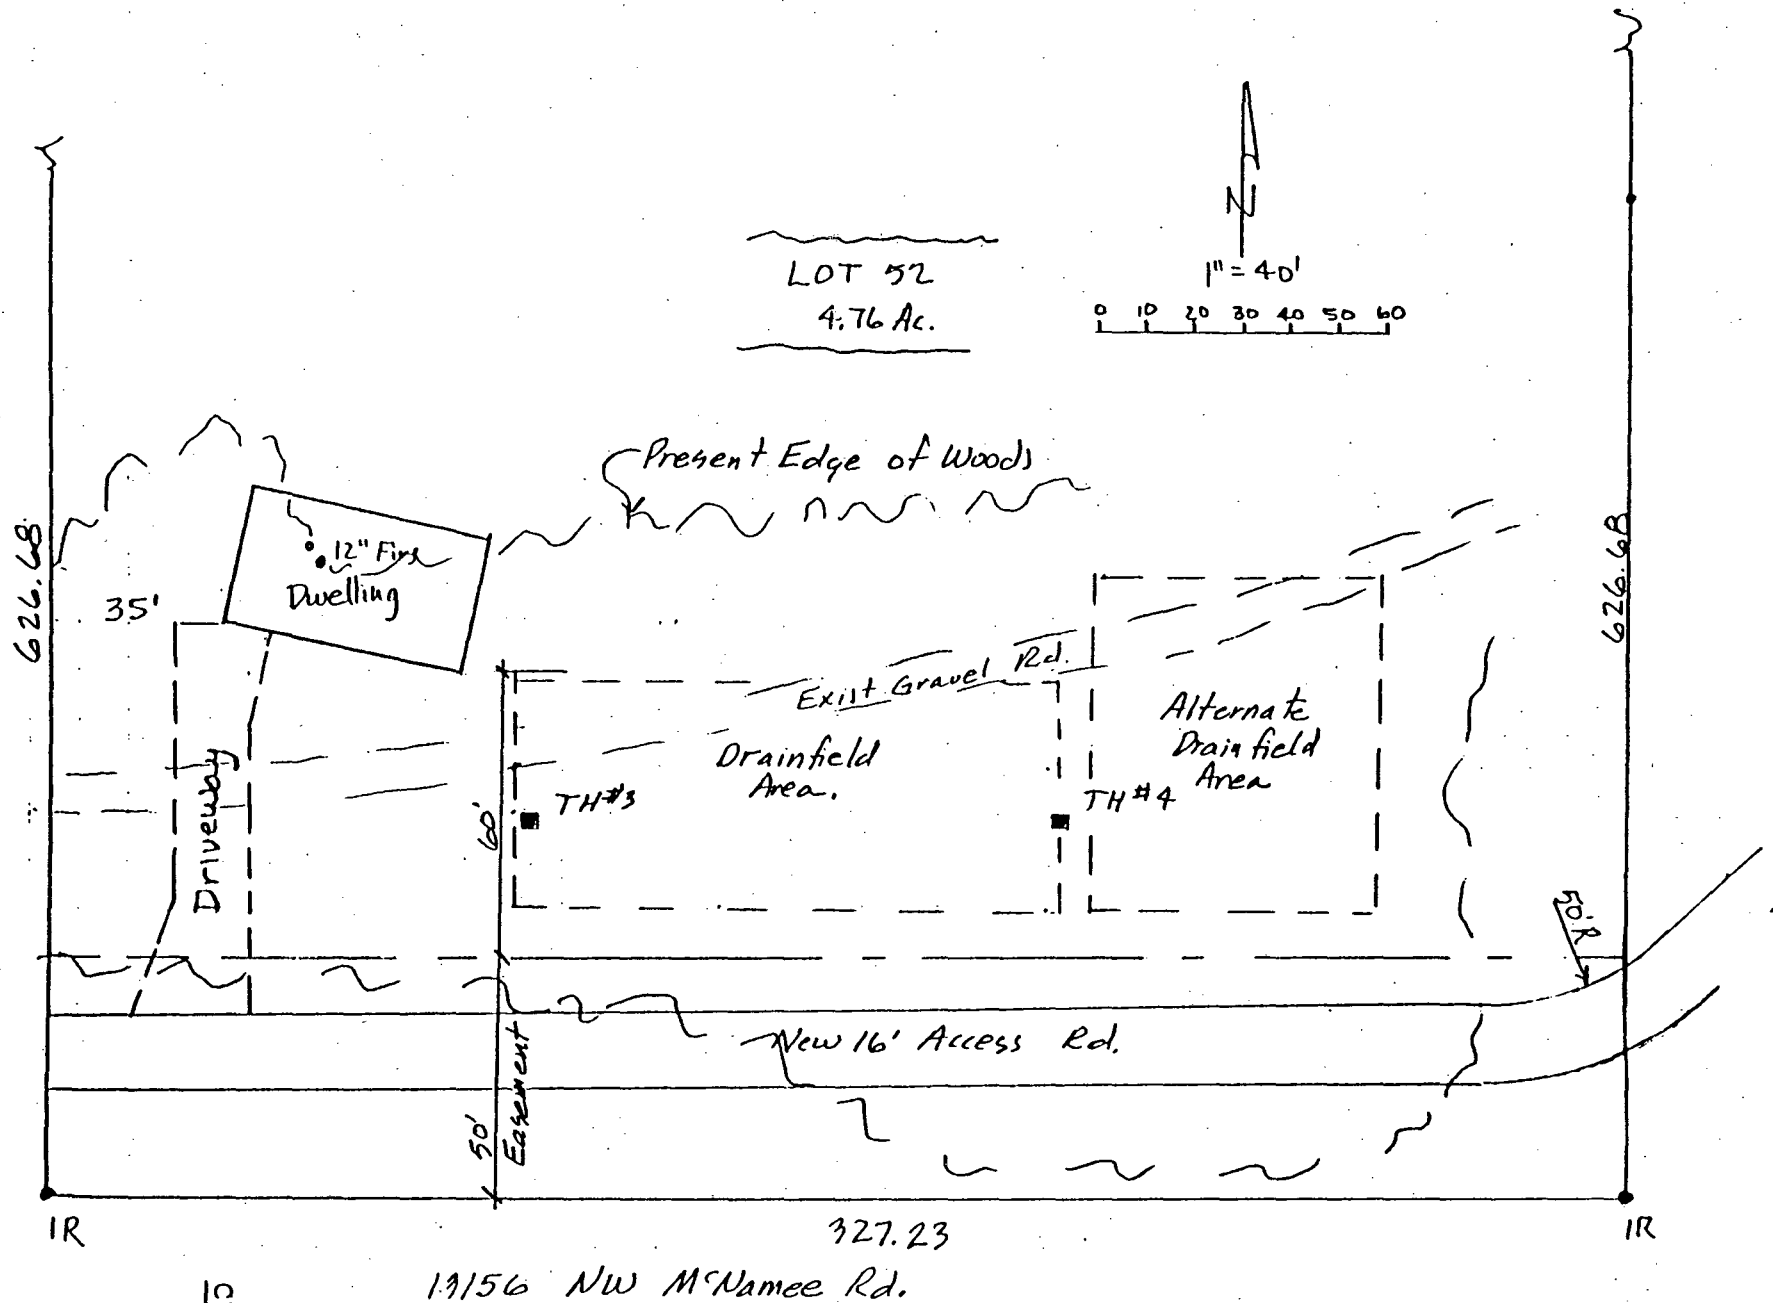 LOT 52
4.76 Ac.
N
1" = 40'
0 10 20 30 40 50 60
Present Edge of Woods
12" Firs
Dwelling
35'
626.68
626.68
Exist Gravel Rd.
Drainfield
Area.
Alternate
Drainfield
Area
TH #3
TH #4
Driveway
60'
50' R
New 16' Access Rd.
50'
Easement
IR
327.23
IR
NW McNamee Rd.